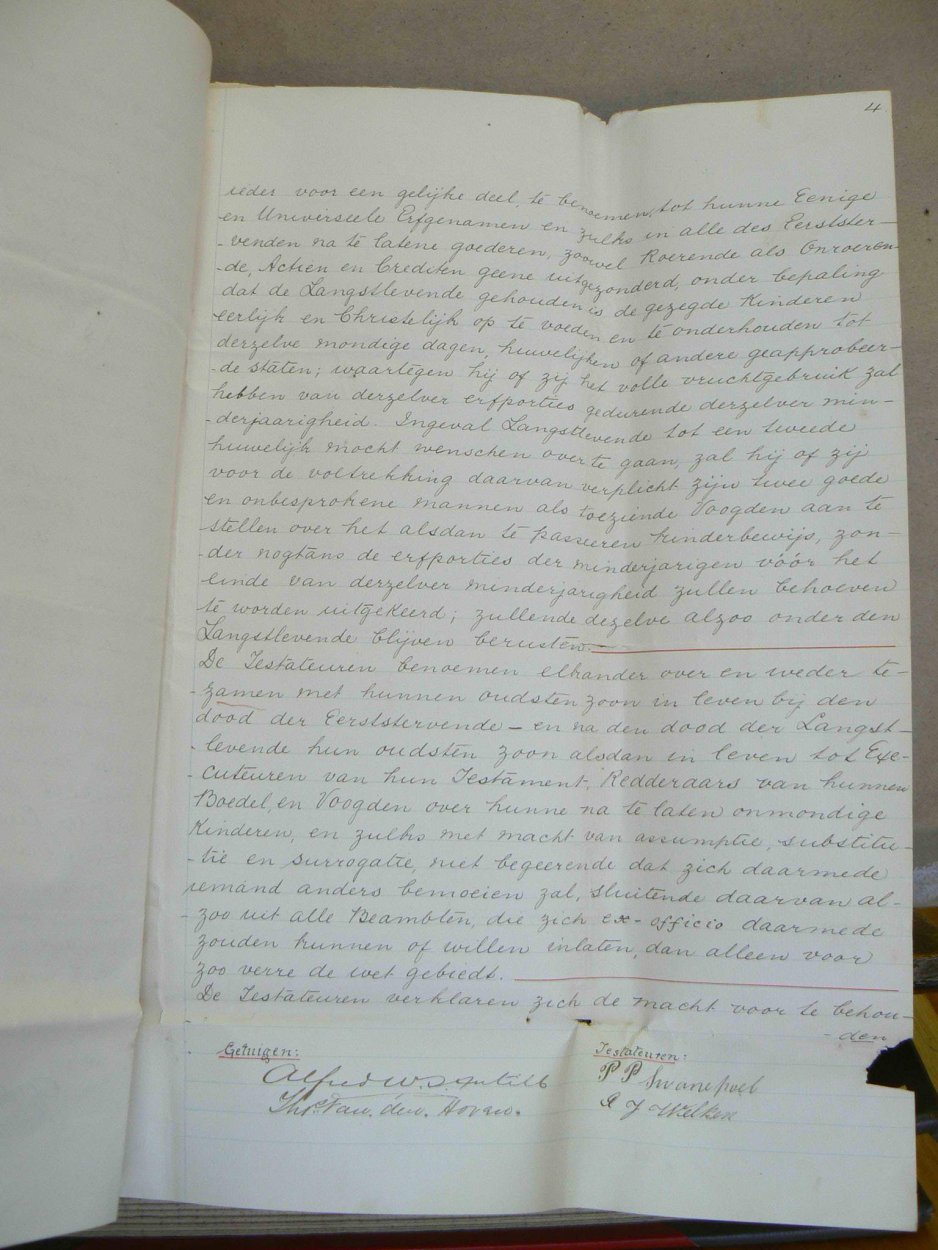 4
ieder voor een gelijke deel, te benoemen, tot hunne Eenige
en Universeele Erfgenamen, en zulks in alle des Eerstster-
-venden na te latene goederen, zoowel Roerende als Onroeren-
-de, Actien en Crediten geene uitgezonderd, onder bepaling
dat de Langstlevende gehouden is de gezegde Kinderen
eerlijk en Christelijk op te voeden en te onderhouden tot
derzelve mondige dagen, huwelijken of andere geapprobeer-
-de staten; waartegen hij of zij het volle vruchtgebruik zal
hebben van derzelver erfporties gedurende derzelver min-
-derjaarigheid. Ingeval Langstlevende tot een tweede
huwelijk mocht wenschen over te gaan, zal hij of zij
voor de voltrekking daarvan verplicht zijn twee goede
en onbesprokene mannen als toeziende Voogden aan te
stellen over het alsdan te passeeren kinderbewijs, zon-
-der nogtans de erfporties der minderjarigen vóór het
einde van derzelver minderjarigheid zullen behoeven
te worden uitgekeerd; zullende dezelve alzoo onder den
Langstlevende blijven berusten.
De Testateuren benoemen elkander over en weder te-
-zamen met hunnen oudsten zoon in leven bij den
dood der Eerststervende – en na den dood der Langst-
-levende hun oudsten zoon alsdan in leven tot Exe-
-cuteuren van hun Testament, Redderaars van hunnen
Boedel, en Voogden over hunne na te laten onmondige
Kinderen, en zulks met macht van assumptie, substitu-
-tie en surrogatie, niet begeerende dat zich daarmede
iemand anders bemoeien zal, sluitende daarvan al-
-zoo uit alle Beambten, die zich ex-officio daarmede
zouden kunnen of willen inlaten, dan alleen voor
zoo verre de wet gebiedt.
De Testateuren verklaren zich de macht voor te behou-
-den
Getuigen:
Testateuren:
Alfred W.
P P Swanepoel
van den Hoven.
J Wilken